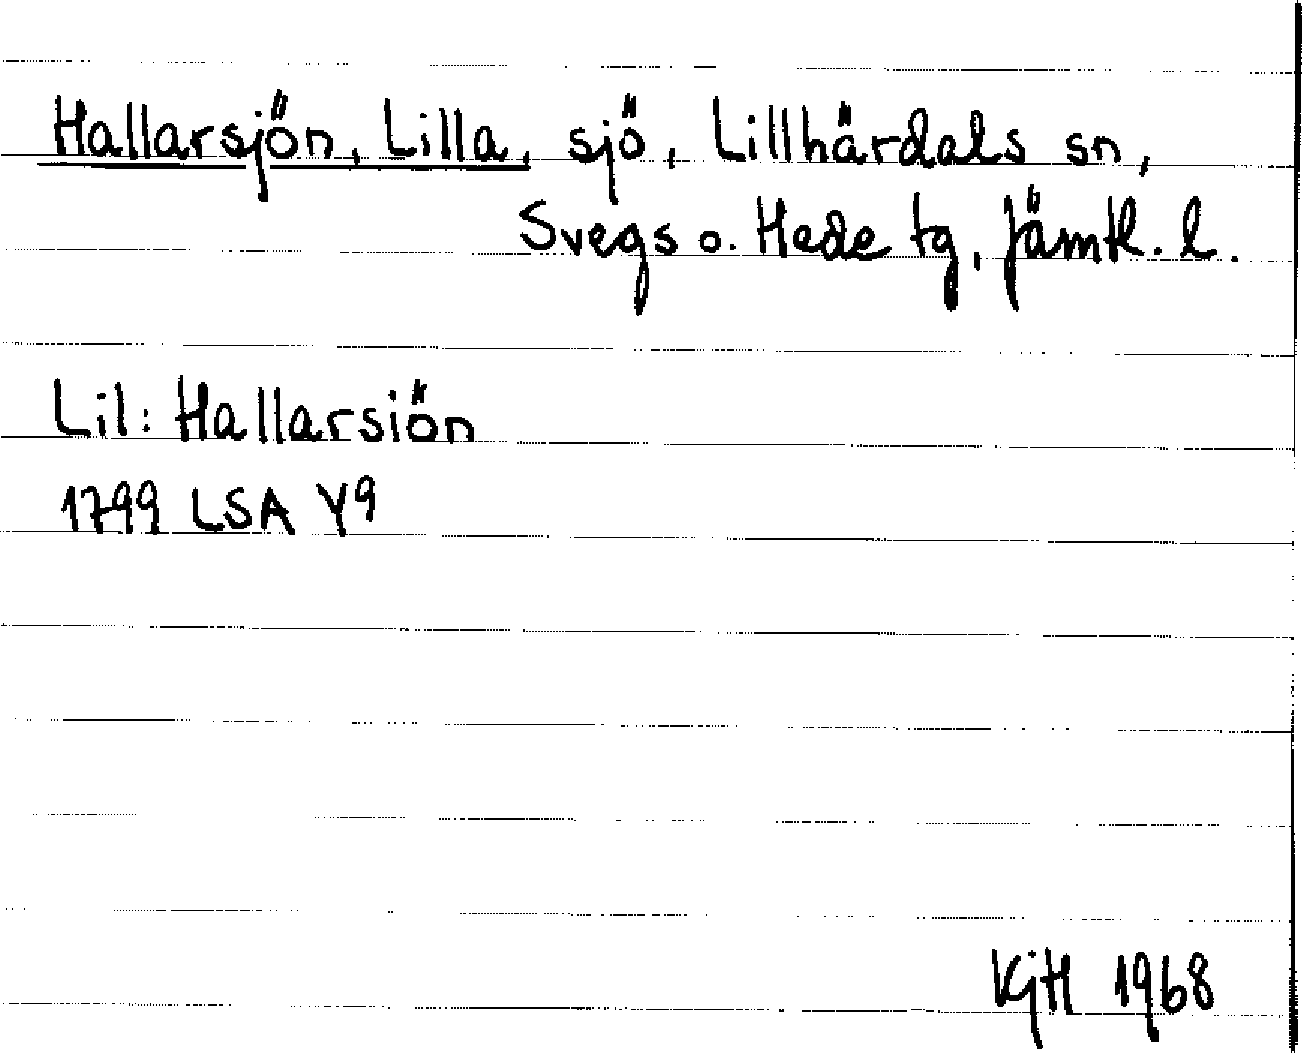 Hallarsjön, Lilla, sjö, Lillhärdals sn,
Svegs o. Hede tg, Jämtl. l.
Lil: Hallarsiön
1799 LSA Y9
KjH 1968